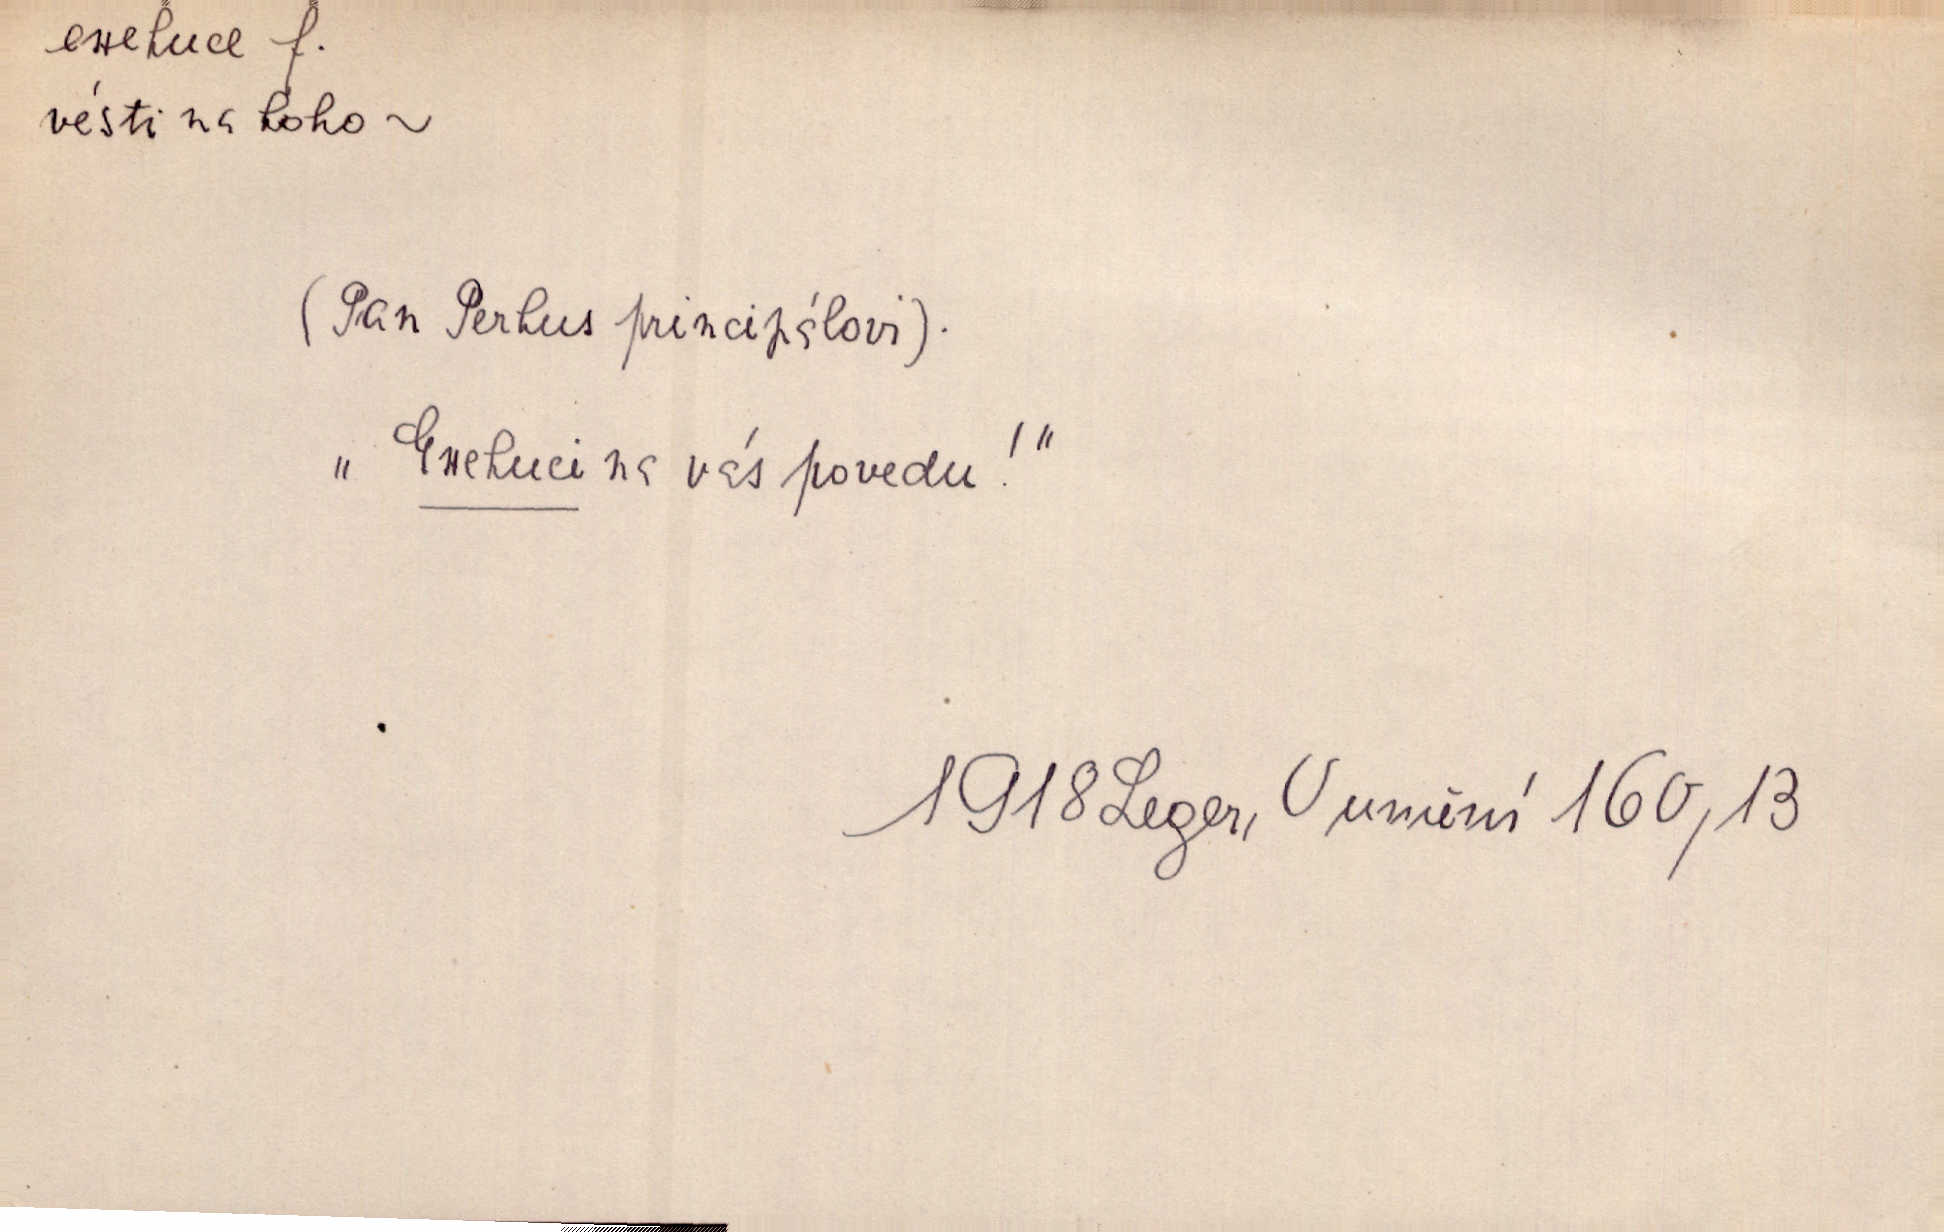 exekuce f.
vésti na koho ~
(Pan Perkus principálovi).
„Exekuci na vás povedu!"
1918 Leger, V umění 160,13